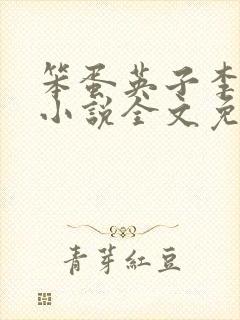 笨蛋英子李
小説全文免
青芽紅豆